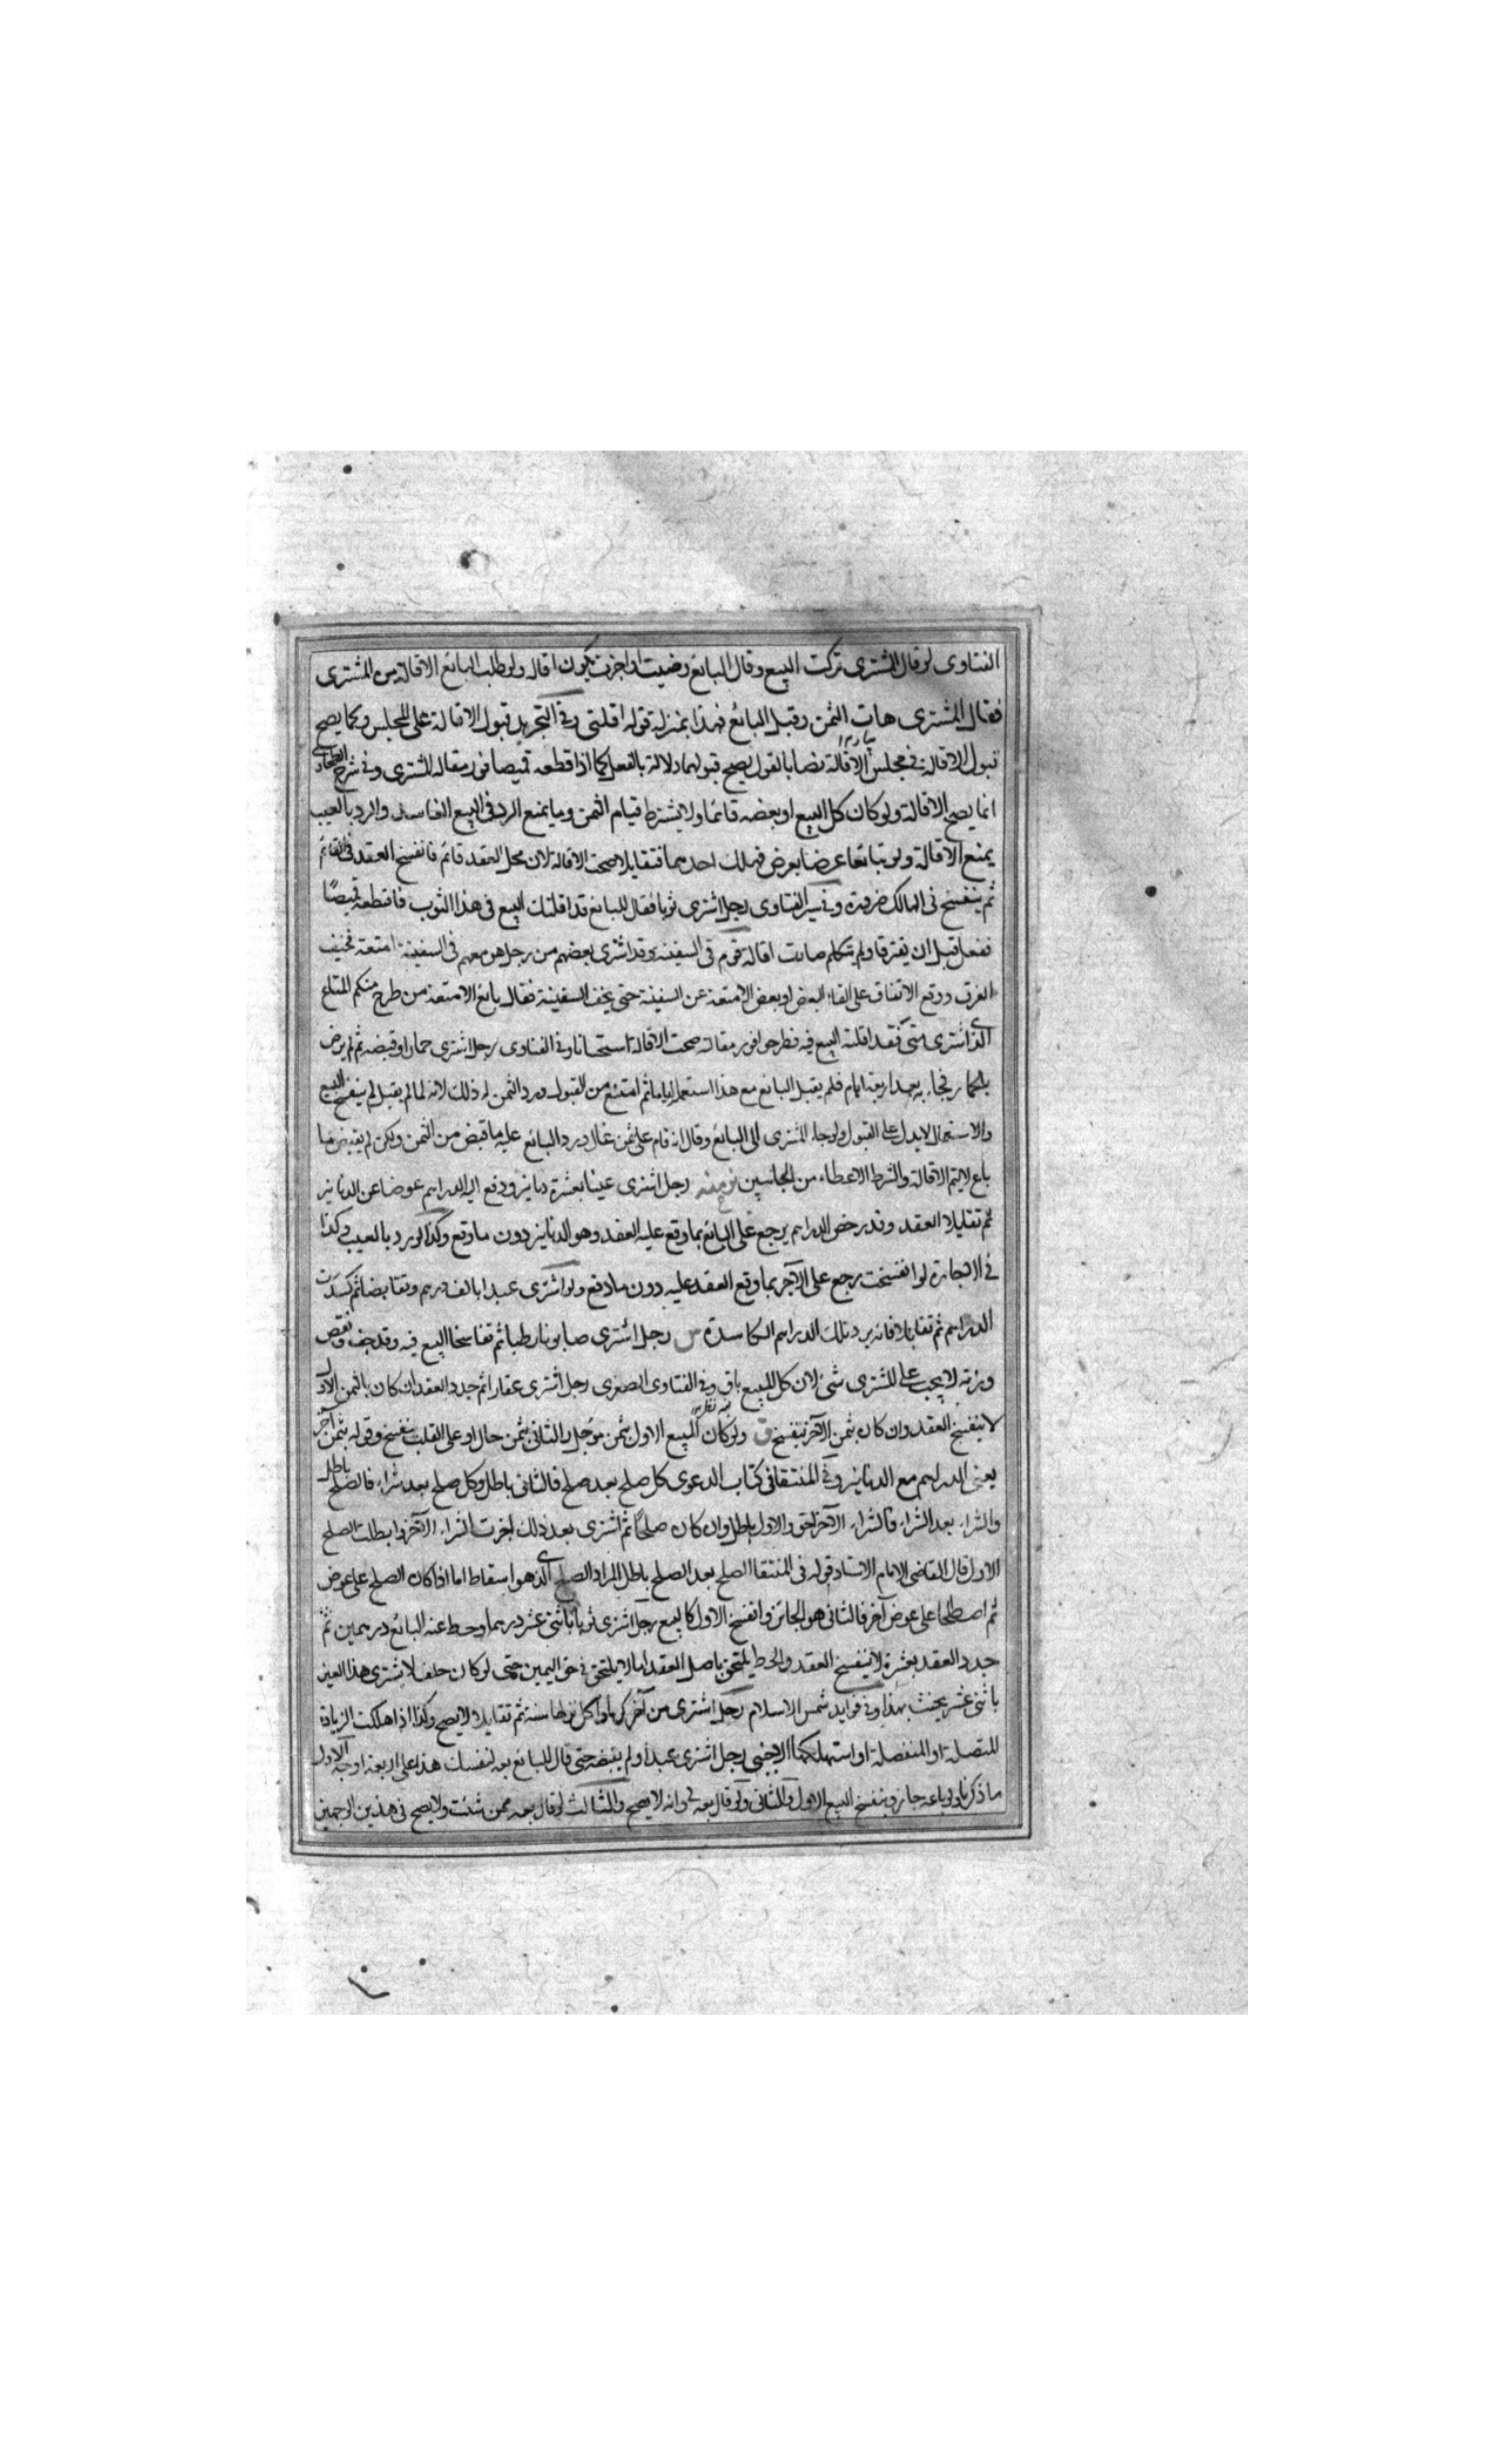 الفتاوى لو قال المشترى تركت البيع وقال البائع رضيت او اجزت يكون اقالة ولو طلب البائع الاقالة من المشترى
فقال المشترى هات الثمن وقبل البائع فهذا بمنزلة قوله اقلنى وفى التجريد قبول الاقالة على المجلس وكما يصح
قبول الاقالة فى مجلس الاقالة نصا بالقول يصح قبولها دلالة بالفعل كما اذا قطعه قميصا فور مقالة المشترى وفى شرح الطحاوى
انما يصح الاقالة ولو كان كل البيع او بعضه قائما ولا يشترط قيام الثمن وما يمنع الرد فى البيع الفاسد والرد بالعيب
يمنع الاقالة ولو تبائعا عرضا بعرض فهلك احدهما فتقايلا صحت الاقالة لان محل العقد قائم فانفسخ العقد فى القائم
ثم ينفسخ فى الهالك ضرورة وفى سير الفتاوى رجل اشترى ثوبا فقال للبائع قد اقلتك البيع فى هذا الثوب فاقطعه قميصًا
ففعل قبل ان يفترقا ولم يتكلم صارت اقالة قوم فى السفينة وقد اشترى بعضهم من رجل هو معهم فى السفينة امتعة فخيف
الغرق ووقع الاتفاق على القاء البعض او بعض الامتعة عن السفينة حتى يخف السفينة فقال بائع الامتعة من طرح منكم المتاع
الذى اشترى منى فقد اقلته البيع فيه فطرحوا فور مقالته صحت الاقالة استحسانا وفى الفتاوى رجل اشترى حمارا وقبضه ثم لم يرض
بالحمار فجاء به بعد اربعة ايام فلم يقبل البائع مع هذا استعمله اياما ثم امتنع من القبول ورد الثمن له ذلك لانه لما لم يقبل لم ينفسخ البيع
والاستعمال لا يدل على القبول ولو جاء المشترى الى البائع وقال انه قام على ثمن غال ورد البائع عليه ما قبض من الثمن ولكن لم يقبض ما
باع لا يتم الاقالة والشرط الاعطاء من الجانبين رجل اشترى عينا بعشرة دنانير ودفع اليه الدراهم عوضا عن الدنانير
ثم تقايلا العقد وقد رخص الدراهم يرجع على البائع بما وقع عليه العقد وهو الدنانير دون ما دفع وكذا لو رد بالعيب وكذا
فى الاجارة لو انفسخت رجع على الآجر بما وقع العقد عليه دون ما دفع ولو اشترى عبدا بالف درهم وتقابضا ثم كسدت
الدراهم ثم تقايلا فانه يرد تلك الدراهم الكاسدة س رجل اشترى صابونا رطبا ثم تفاسخا البيع فيه وقد جف ونقص
وزنه لا يجب على المشترى شئ لان كل المبيع باق وفى الفتاوى الصغرى رجل اشترى عقارا ثم جدد العقد ان كان بالثمن الاول
لا ينفسخ العقد وان كان بثمن الآخر ينفسخ ق ولو كان البيع الاول بثمن مؤجل والثانى بثمن حال او على القلب ينفسخ وقوله بثمن آخر
يعنى الدراهم مع الدنانير وفى المنتقا فى كتاب الدعوى كل صلح بعد صلح فالثانى باطل وكل صلح بعد شراء فالصلح باطل
والشراء بعد الشراء فالشراء الآخر احق والاول باطل وان كان صلحًا ثم اشترى بعد ذلك اجزت الشراء الآخر وابطلت الصلح
الاول قال القاضى الامام الاستاد قوله فى المنتقا الصلح بعد الصلح باطل المراد الصلح الذى هو اسقاط اما اذا كان الصلح على عوض
ثم اصطلحا على عوض آخر فالثانى هو الجائز وانفسخ الاول كالبيع رجل اشترى ثوبًا باثنى عشر درهما وحط عنه البائع درهمين ثم
جدد العقد بعشرة لا ينفسخ العقد والحط يلتحق باصل العقد اما لا يلتحق فى حق اليمين حتى لو كان حلف لا يشترى هذا العين
باثنى عشر يحنث بهذا وفى فوايد شمس الاسلام رجل اشترى من آخر كرما واكل نزلها سنة ثم تقايلا لا يصح وكذا اذا هلكت الزيادة
المتصلة او المنفصلة او استهلكها الاجنبى رجل اشترى عبدا ولم يقبضه حتى قال للبائع بعه لنفسك هذا على اربعة اوجه الاول
ما ذكرنا ولو باعه جاز وينفسخ البيع الاول والثانى ولو قال بعه لى وانه لا يصح والثالث لو قال بعه ممن شئت ولا يصح فى هذين الوجهين